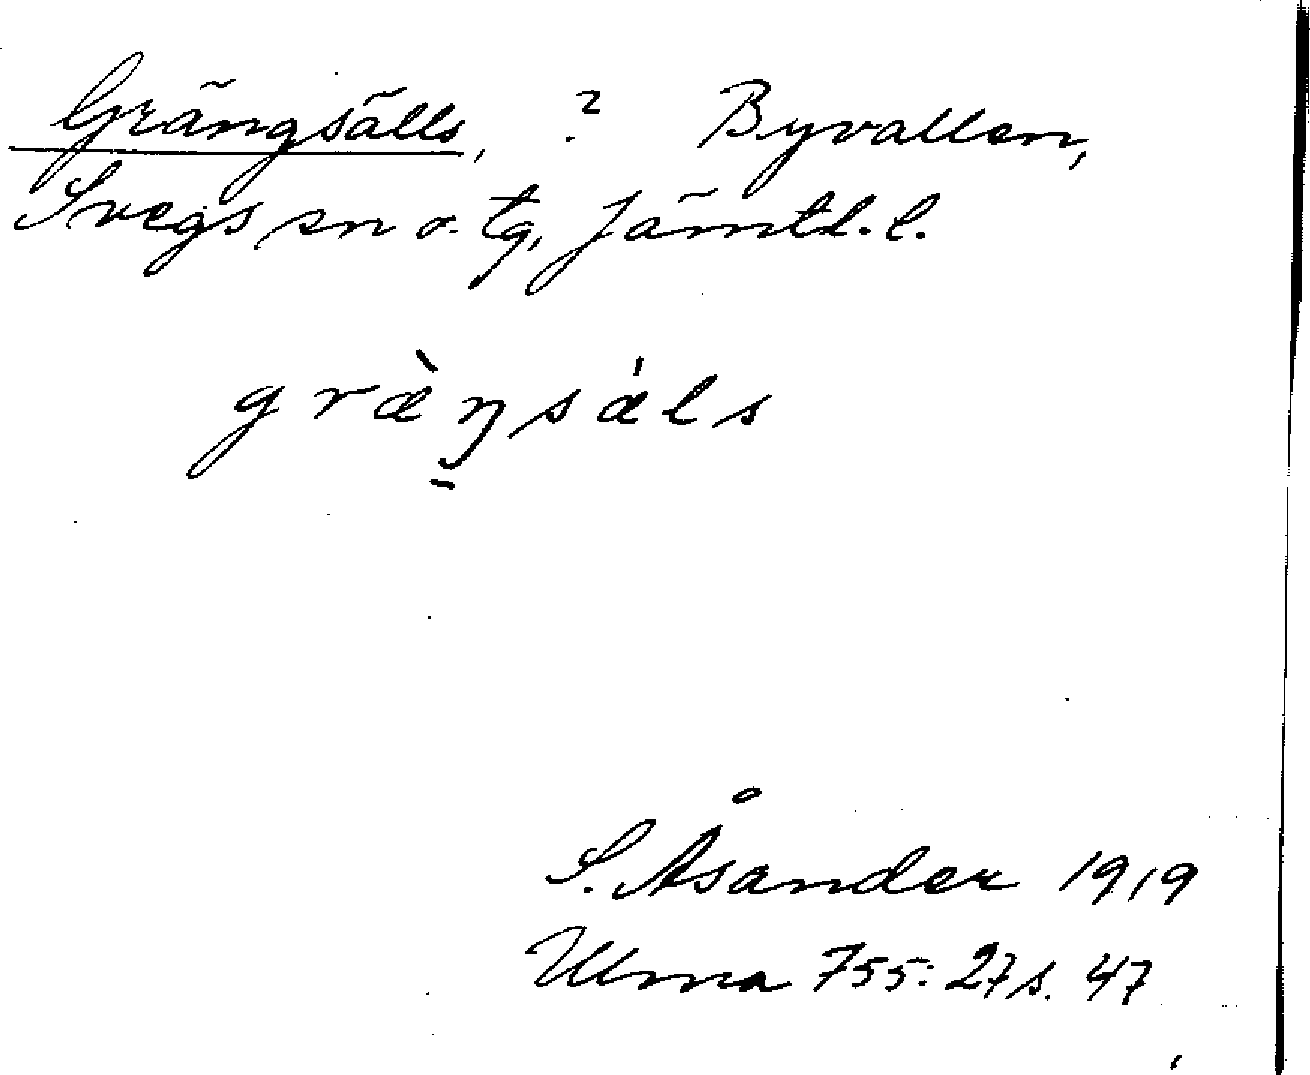 Grängsälls, ? Byvallen,
Svegs sn o. tg, Jämtl. l.
græ̀ŋsáls
S. Åsander 1919
Ulma 755:27 s. 47